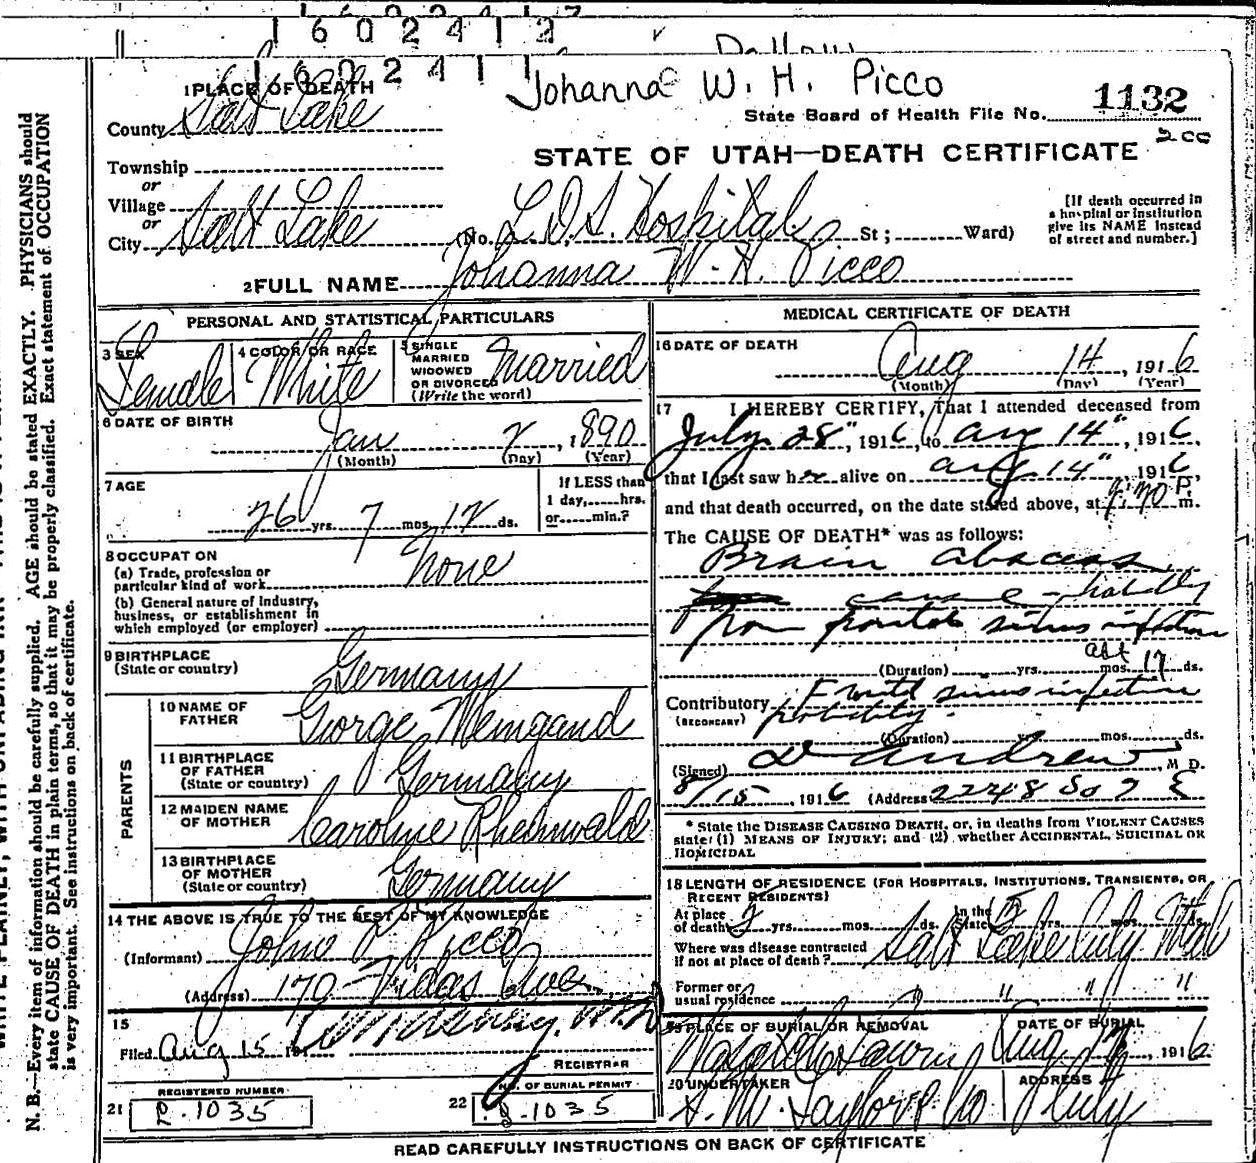 1602412
160 2411
Johanna W. H. Picco
1 PLACE OF DEATH
County Salt Lake
State Board of Health File No. 1132
2cc
STATE OF UTAH—DEATH CERTIFICATE
Township
or
Village
or
City Salt Lake (No. L.D.S. Hospital St; Ward)
[If death occurred in
a hospital or institution
give its NAME instead
of street and number.]
2 FULL NAME Johanna W. H. Picco
PERSONAL AND STATISTICAL PARTICULARS
3 SEX Female
4 COLOR OR RACE White
5 SINGLE
MARRIED
WIDOWED
OR DIVORCED
(Write the word) Married
6 DATE OF BIRTH
Jan 2, 1890
(Month) (Day) (Year)
7 AGE
26 yrs. 7 mos. 12 ds.
If LESS than
1 day,......hrs.
or......min.?
8 OCCUPATION
(a) Trade, profession or
particular kind of work None
(b) General nature of industry,
business, or establishment in
which employed (or employer)
9 BIRTHPLACE
(State or country) Germany
PARENTS
10 NAME OF
FATHER George Weingand
11 BIRTHPLACE
OF FATHER
(State or country) Germany
12 MAIDEN NAME
OF MOTHER Caroline Rheinwald
13 BIRTHPLACE
OF MOTHER
(State or country) Germany
14 THE ABOVE IS TRUE TO THE BEST OF MY KNOWLEDGE
(Informant) John Picco
(Address) 170 Ave
15
Filed Aug 15
REGISTRAR
REGISTERED NUMBER
21 1035
NO. OF BURIAL PERMIT
22 1035
MEDICAL CERTIFICATE OF DEATH
16 DATE OF DEATH
Aug 14, 1916
(Month) (Day) (Year)
17 I HEREBY CERTIFY, That I attended deceased from
July 28", 1916, to Aug 14", 1916,
that I last saw her alive on Aug 14" 1916,
and that death occurred, on the date stated above, at P. m.
The CAUSE OF DEATH* was as follows:
Brain abscess
cause - probably
from frontal sinus infection
(Duration) yrs. mos. abt 17 ds.
Contributory Frontal sinus infection
(SECONDARY) probably.
(Duration) yrs. mos. ds.
(Signed) Andrew, M D.
8/15, 1916 (Address) 2248 So 7 E
* State the DISEASE CAUSING DEATH, or, in deaths from VIOLENT CAUSES
state: (1) MEANS OF INJURY; and (2) whether ACCIDENTAL, SUICIDAL OR
HOMICIDAL
18 LENGTH OF RESIDENCE (FOR HOSPITALS, INSTITUTIONS, TRANSIENTS, OR
RECENT RESIDENTS)
At place
of death yrs. mos. ds. In the
State yrs. mos. ds.
Where was disease contracted
if not at place of death? Salt Lake City Utah
Former or
usual residence " " " "
19 PLACE OF BURIAL OR REMOVAL
DATE OF BURIAL
Aug , 1916
20 UNDERTAKER
ADDRESS
S. M. Taylor & Co City
READ CAREFULLY INSTRUCTIONS ON BACK OF CERTIFICATE
N. B.—Every item of information should be carefully supplied. AGE should be stated EXACTLY. PHYSICIANS should
state CAUSE OF DEATH in plain terms, so that it may be properly classified. Exact statement of OCCUPATION
is very important. See instructions on back of certificate.